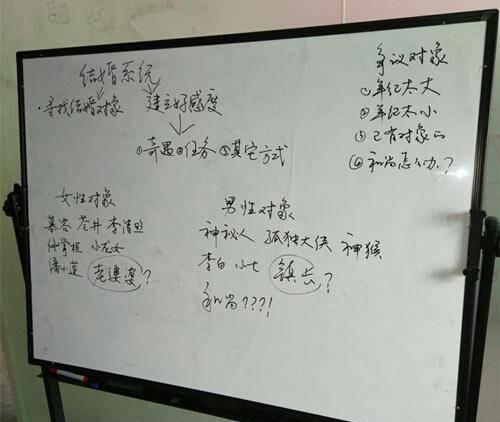 结婚系统
·寻找结婚对象 建立好感度
①奇遇②任务③其它方式
争议对象
①年纪太大
②年纪太小
③已有对象的
④和尚怎么办?
女性对象
慕容 苍井 李清照
佟掌柜 小龙女
潘小莲 老婆婆?
男性对象
神秘人 孤独大侠 神猴
李白 小七 镇长?
和尚???!